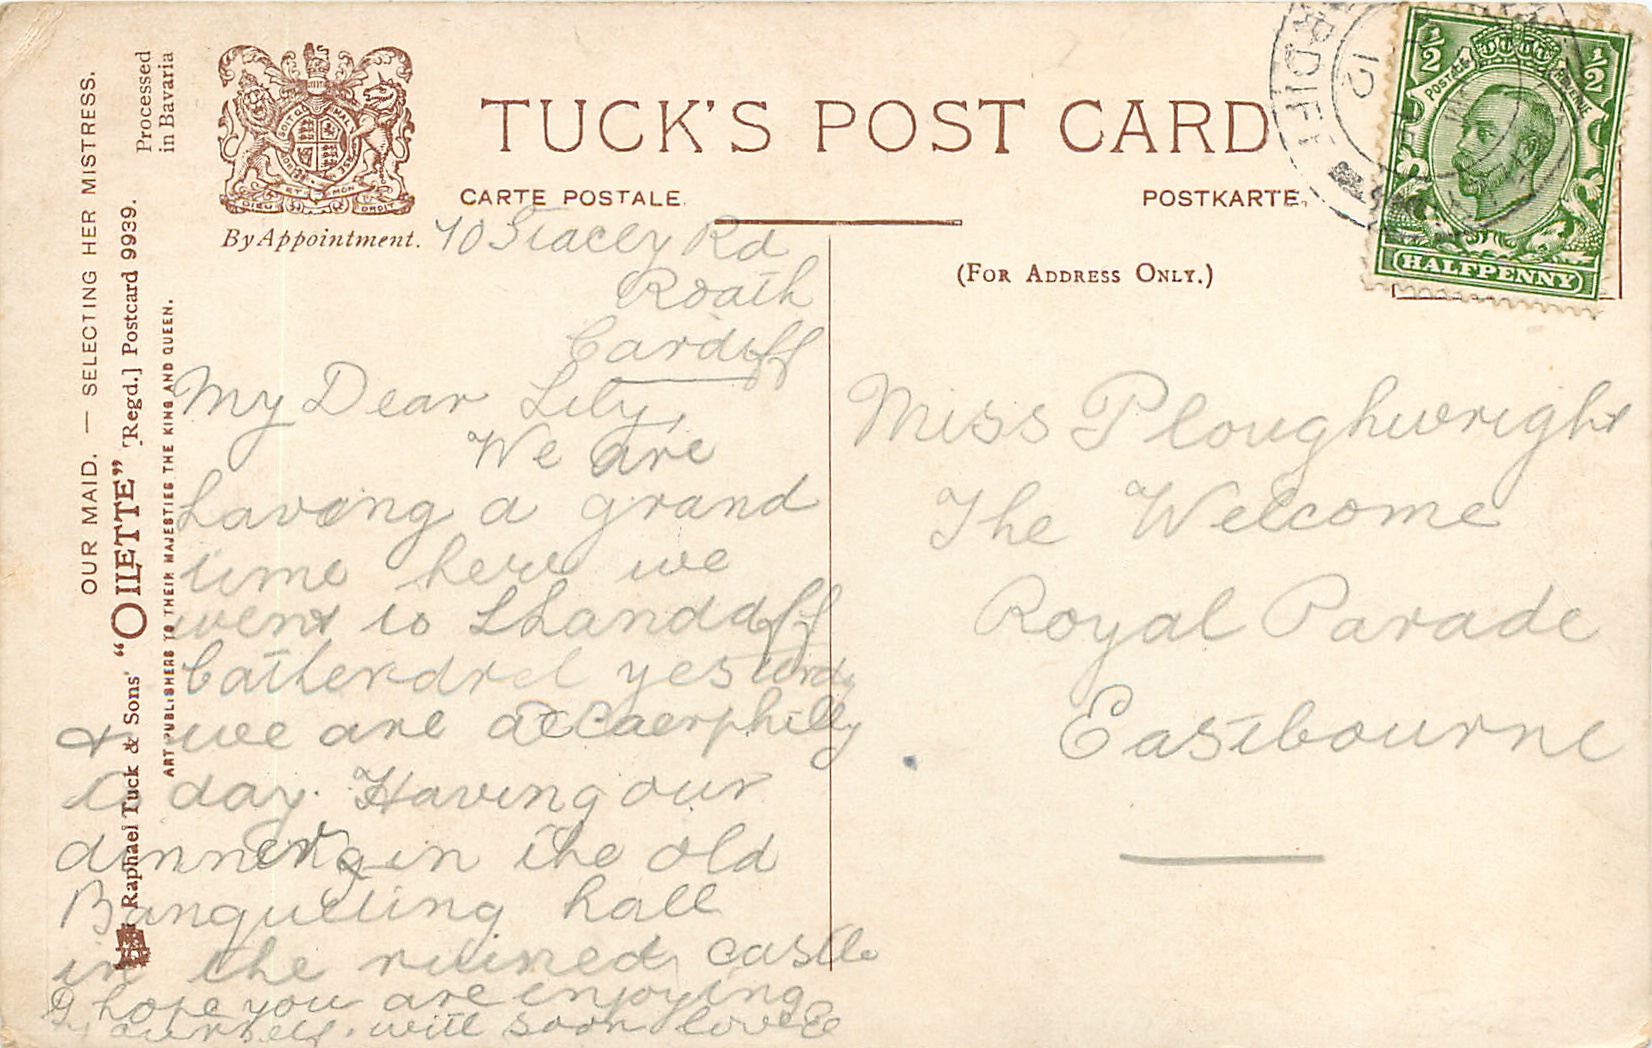 OUR MAID. — SELECTING HER MISTRESS.
Raphael Tuck & Sons' "OILETTE" [Regd.] Postcard 9939.
ART PUBLISHERS TO THEIR MAJESTIES THE KING AND QUEEN.
Processed
in Bavaria
DIEU ET MON DROIT
By Appointment.
TUCK'S POST CARD
CARTE POSTALE.
POSTKARTE.
(FOR ADDRESS ONLY.)
RDIFF
12
1/2
1/2
POSTAGE
REVENUE
HALFPENNY
70 Stacey Rd
Roath
Cardiff
My Dear Lily,
We are
having a grand
time here we
went to Lhandaff
Catherdrel yesterd
& we are at Caerphilly
to day. Having our
dinner in the old
Banqueting hall
in the ruined castle
I hope you are enjoying
yourself. will soon love E
Miss Ploughwright
The Welcome
Royal Parade
Eastbourne